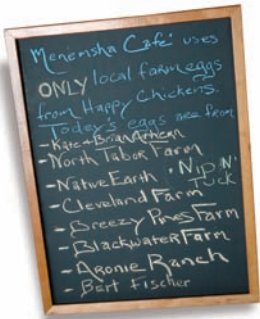 Menemsha Café uses
ONLY local farm eggs
from Happy Chickens.
Today's eggs are from
- Kate + Brian Athearn
- North Tabor Farm
- Native Earth
· Nip N' Tuck
- Cleveland Farm
- Breezy Pines Farm
- Blackwater Farm
- Aronie Ranch
- Bert Fischer